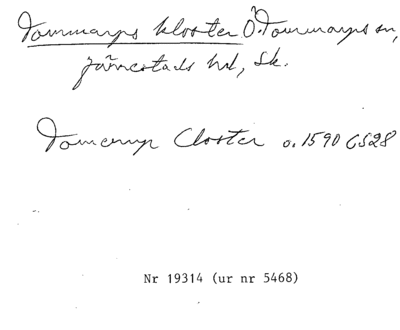 Tommarps kloster Ö. Tommarps sn,
Järrestads hd, Sk.
Tomerup Closter o. 1590 G528
Nr 19314 (ur nr 5468)